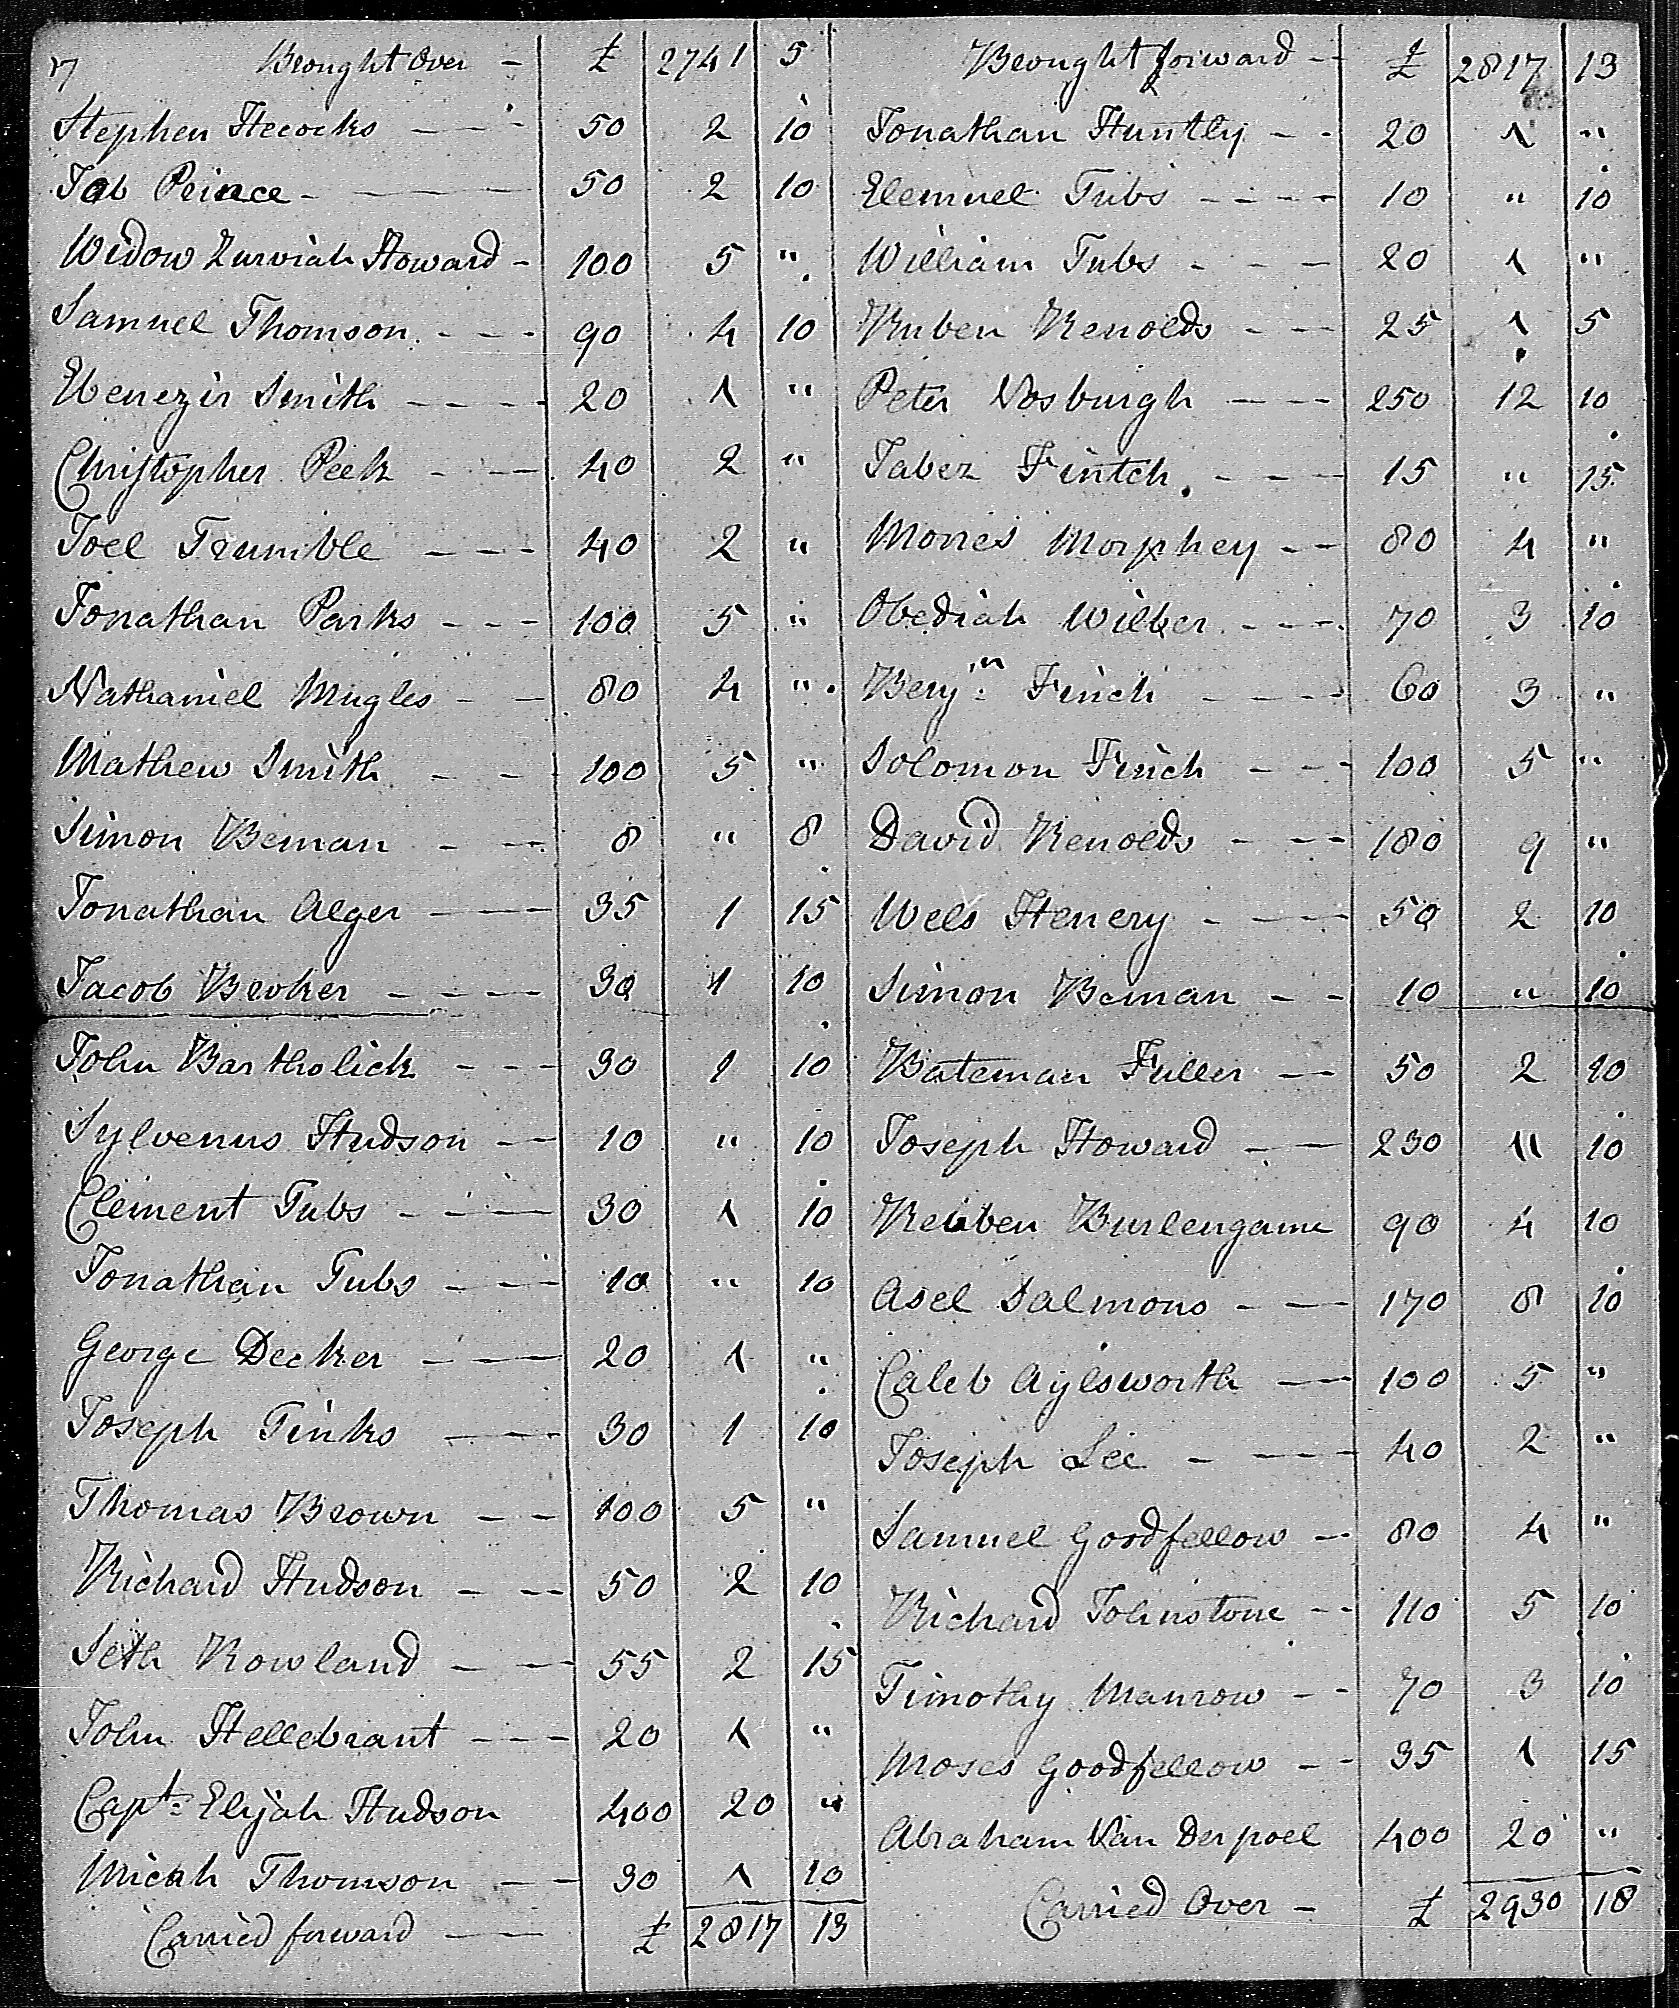 7 Brought Over - £ 2741 5
Stephen Hecocks - - - 50 2 10
Job Peirce - - 50 2 10
Widow Zurviah Howard - 100 5 "
Samuel Thomson - - - 90 4 10
Ebenezir Smith - - - - 20 1 "
Christopher Peek - - 40 2 "
Joel Trumble - - - 40 2 "
Jonathan Parks - - - 100 5 "
Nathaniel Mugles - - 80 4 "
Mathew Smith - - - 100 5 "
Simon Beman - - - 8 " 8
Jonathan Alger - - - 35 1 15
Jacob Bevker - - - - 30 1 10
John Bartholick - - - 30 1 10
Sylvenus Hudson - - 10 " 10
Clement Tubs - - - 30 1 10
Jonathan Tubs - - - 10 " 10
George Decker - - - 20 1 "
Joseph Tinks - - 30 1 10
Thomas Brown - - 100 5 "
Richard Hudson - - - 50 2 10
Seth Rowland - - - 55 2 15
John Hellebrant - - - 20 1 "
Capt: Elijah Hudson 400 20 "
Micah Thomson - - 30 1 10
Carried forward - - £ 2817 13
Brought forward - - £ 2817 13
Jonathan Huntly - - 20 1 "
Elemuel Tubs - - - - 10 " 10
William Tubs - - - 20 1 "
Ruben Renolds - - - 25 1 5
Peter Vosburgh - - - 250 12 10
Jabez Fintch. - - - 15 " 15
Morres Morphey - - 80 4 "
Obediah Wilber - - - 70 3 10
Benjn: Finch - - - - 60 3 "
Solomon Finch - - - 100 5 "
David Renolds - - - 180 9 "
Wels Henery - - - 50 2 10
Simon Beman - - 10 " 10
Bateman Fuller - - 50 2 10
Joseph Howard - - 230 11 10
Reuben Burlengame 90 4 10
Asel Salmons - - - 170 8 10
Caleb Aylsworth - - 100 5 "
Joseph Lee - - - - 40 2 "
Samuel Goodfellow - - 80 4 "
Richard Johnstone - - 110 5 10
Timothy Manrow - - 70 3 10
Moses Goodfellow - - 35 1 15
Abraham Van Der poel 400 20 "
Carried Over - £ 2930 18